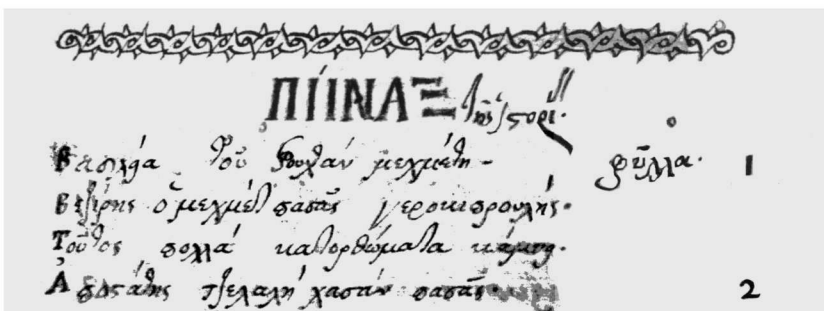 ΠΙΙΝΑΞ τῆς ἱστορί
Βασιλεία τοῦ σουλτάν μεχμέτη - φύλλα. 1
Βεζίρης ὁ μεχμέτ πασᾶς γεροκιπρουλής.
Τοῦτος πολλά κατορθώματα κάμνει.
Ἀποστάτης τζελαλή χασάν πασᾶς. 2